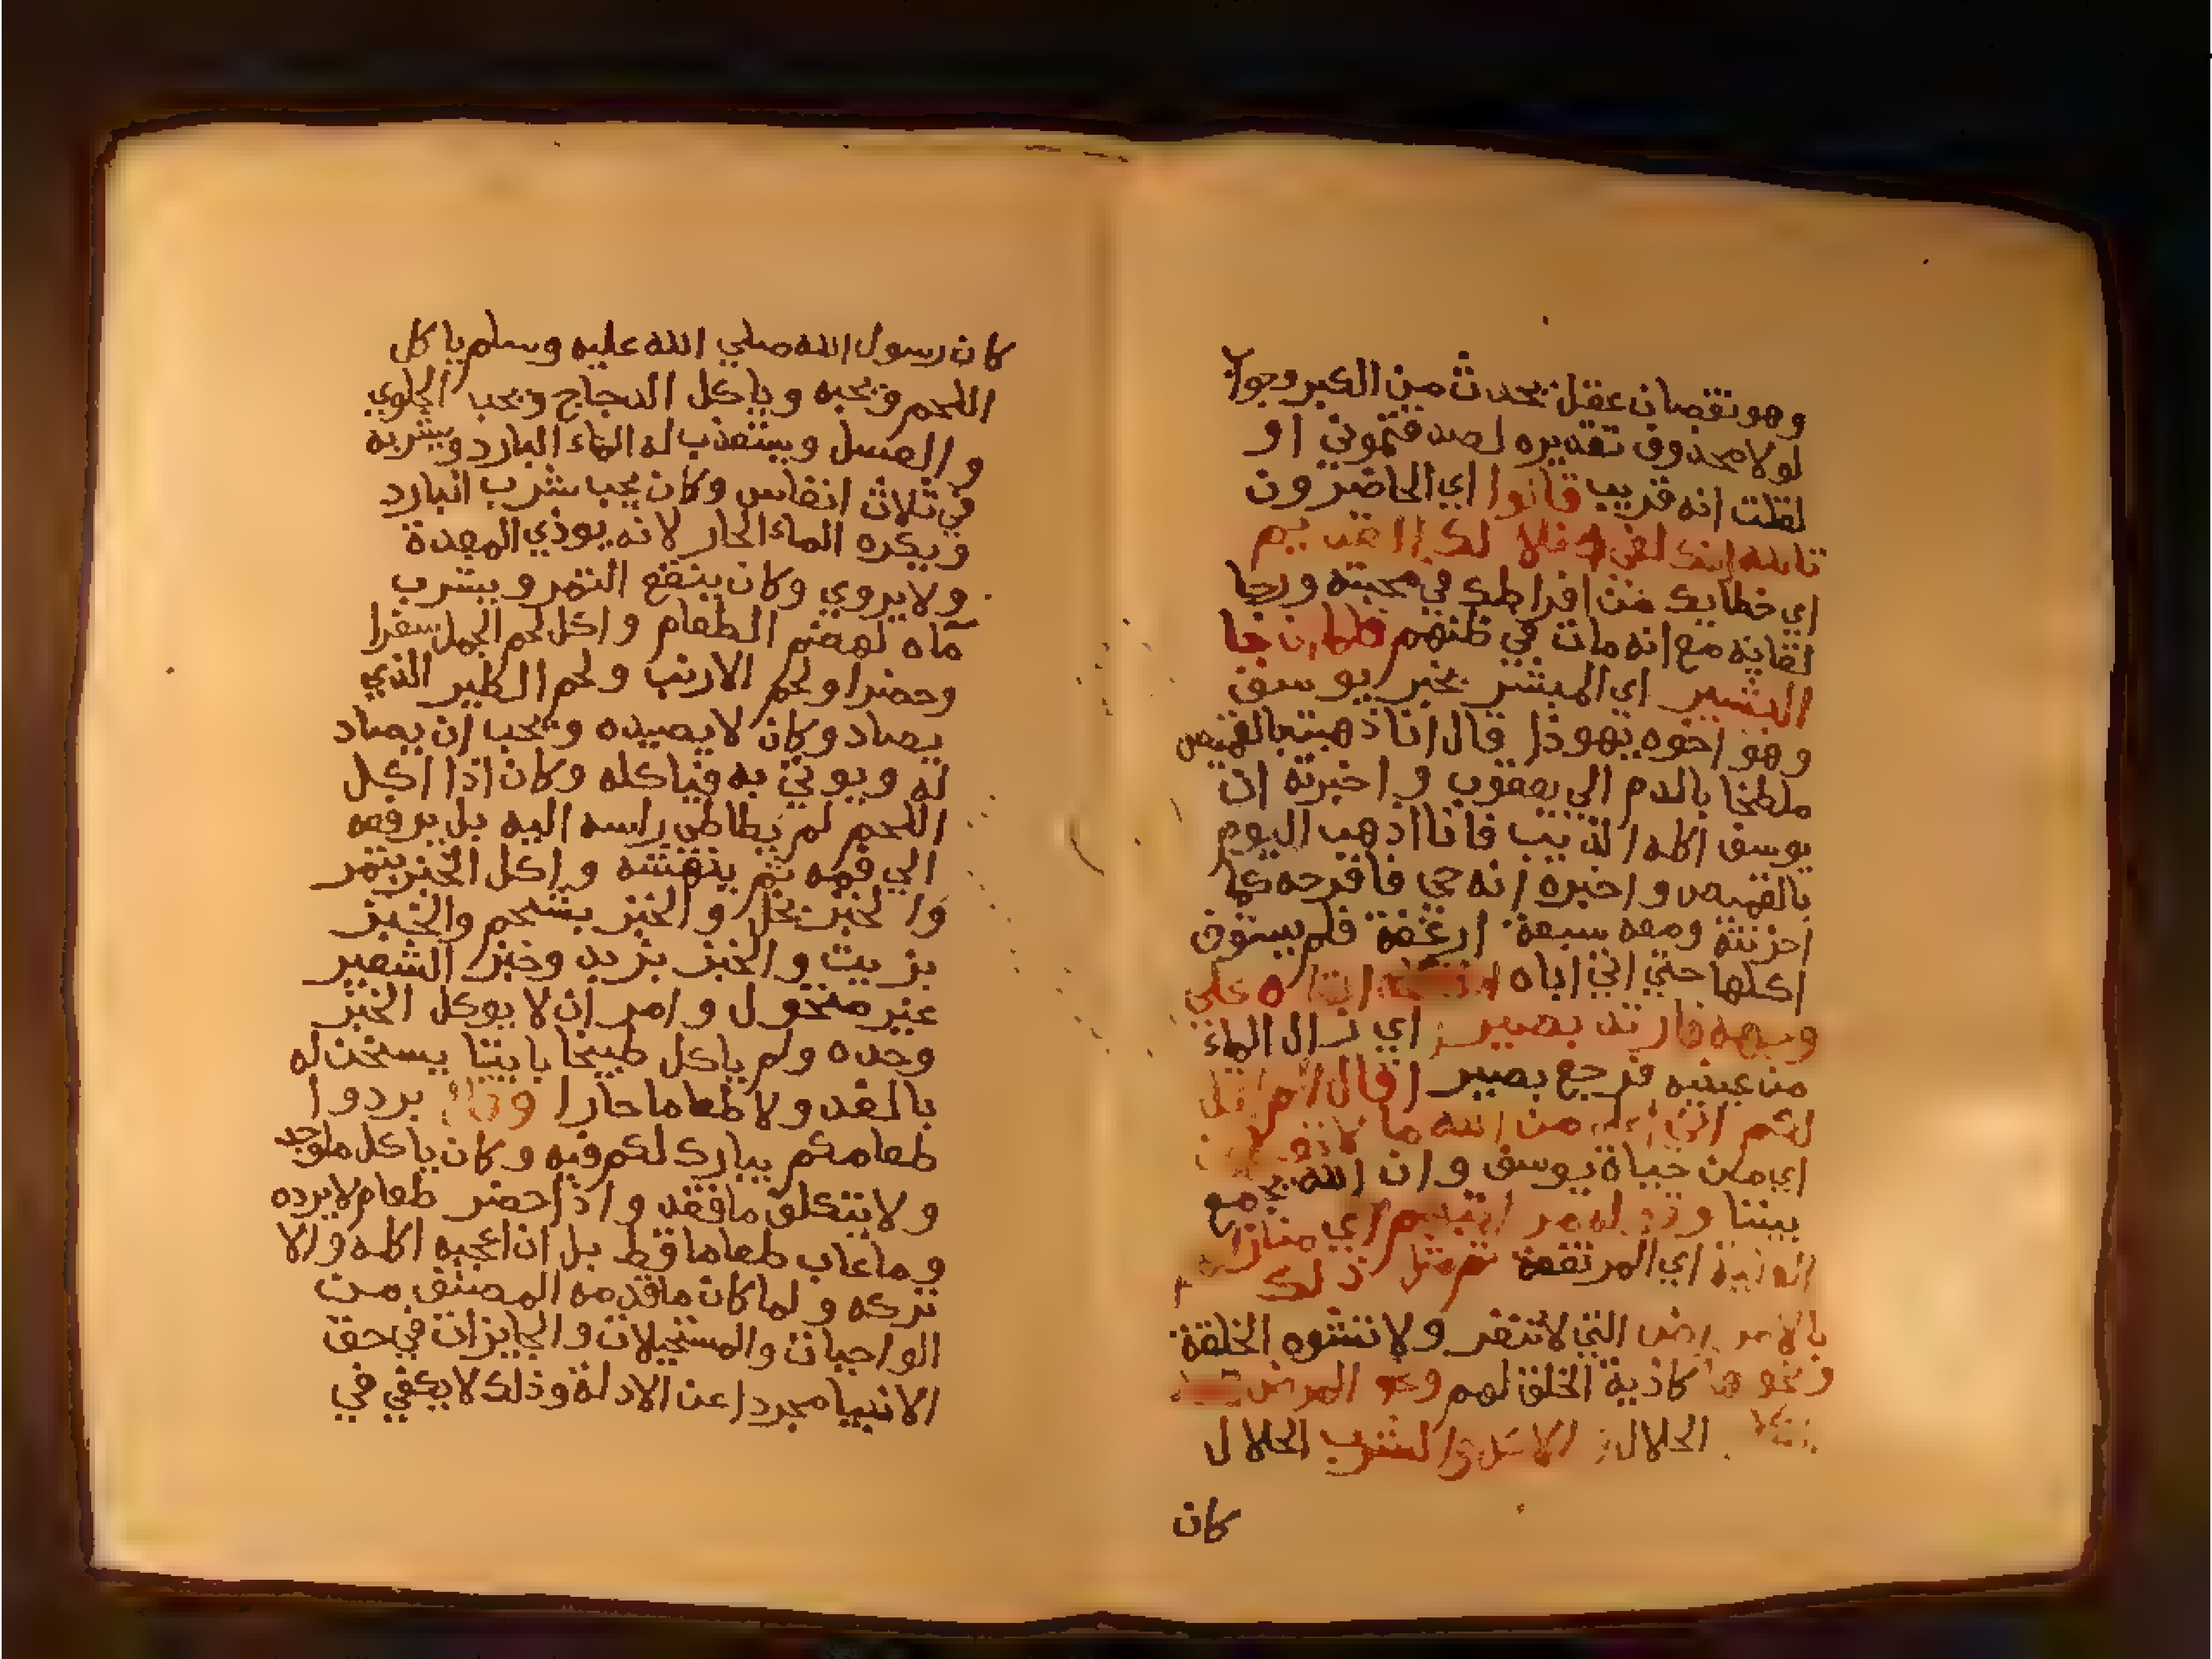 وهو نقصان عقل يحدث من الكبر وجواب
لولا محذوف تقديره لصدقتموني او
لقلت انه قريب قالوا اي الحاضرون
تالله انك لفي ضلالك القديم
اي خطايك من افراطك في محبته ورجا
لقايه مع انه مات في ظنهم فلما ان جا
البشير اي المبشر بخبر يوسف
وهو اخوه يهوذا قال انا ذهبت بالقميص
ملطخا بالدم الي يعقوب واخبرته ان
يوسف اكله الذيب فانا اذهب اليوم
بالقميص واخبره انه حي فافرحه كما
احزنته ومعه سبعة ارغفة فلم يستوف
اكلها حتي اتي اباه القاه علي
وجهه فارتد بصيرا اي زال الماء
من عينيه فرجع بصيرا قال الم اقل
لكم اني اعلم من الله ما لا تعلمون
اي من حياة يوسف وان الله يجمع
بيننا
العالية اي المرتفعة ثم مثل ذلك
بالامراض التي لا تنفر ولا تشوه الخلقة
ونحوها كاذية الخلق لهم ونحو المرض
الحلال الاكل والشرب الحلال
كان
كان رسول الله صلي الله عليه وسلم ياكل
اللحم ويحبه وياكل الدجاج ويحب الحلوي
والعسل ويستعذب له الماء البارد ويشربه
في ثلاث انفاس وكان يحب شرب البارد
ويكره الماء الحار لانه يوذي المعدة
ولا يروي وكان ينقع التمر ويشرب
مآه لهضم الطعام واكل لحم الجمل سفرا
وحضرا ولحم الارنب ولحم الطير الذي
يصاد وكان لا يصيده ويحب ان يصاد
له ويوتي به فياكله وكان اذا اكل
اللحم لم يطاطي راسه اليه بل يرفعه
الي فمه ثم ينهشه واكل الخبز بتمر
والخبز بخل والخبز بشحم والخبز
بزيت والخبز بزبد وخبز الشعير
غير منخول وامر ان لا يوكل الخبز
وحده ولم ياكل طبيخا بايتا يسخن له
بالغد ولا طعاما حارا وقال بردوا
طعامكم يبارك لكم فيه وكان ياكل ما وجد
ولا يتكلف ما فقد واذا حضر طعام لا يرده
وما عاب طعاما قط بل ان اعجبه اكله والا
تركه ولما كان ما قدمه المصنف من
الواجبات والمستحيلات والجايزات في حق
الانبيا مجردا عن الادلة وذلك لا يكفي في